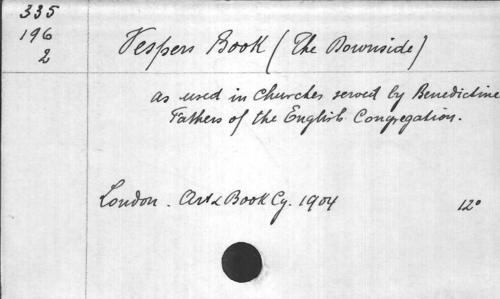 335
196
2
Vespers Book (The Downside)
as used in Churches served by Benedictine
Fathers of the English Congregation.
London. Art & Book Cy. 1904 12°